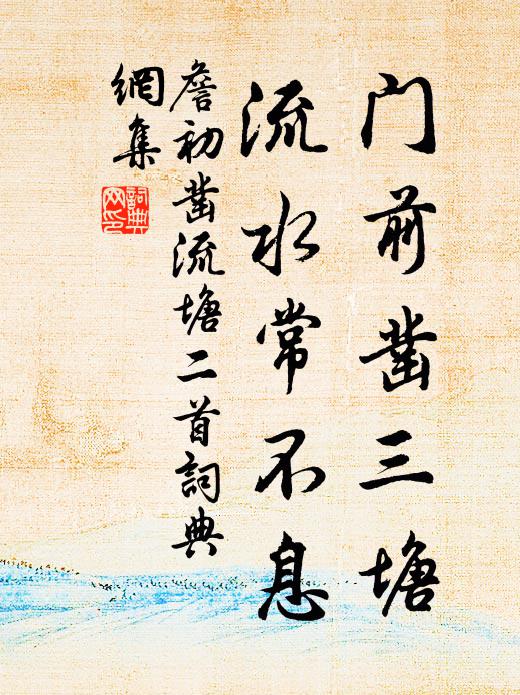 门前凿三塘
流水常不息
詹初凿流塘二首詞典
網集
詞典網印